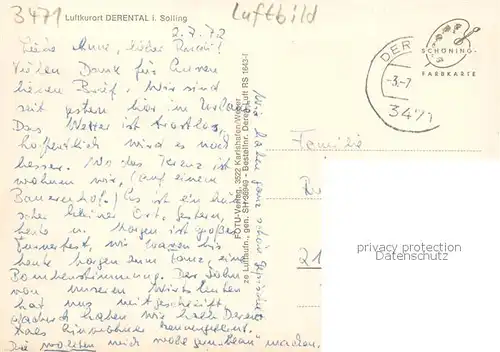 3471
Luftbild
Luftkurort DERENTAL i. Solling
2.7.72
Liebe Anni, lieber
Vielen Dank für Euren
lieben Brief. Wir sind
seit gestern hier im Urlaub.
Das Wetter ist trostlos,
hoffentlich wird es noch
besser. Wo das Kreuz ist
wohnen wir, (auf einem
Bauernhof.) Es ist ein
kleiner Ort. Gestern,
heute u. Morgen ist großes
Turnerfest, wir waren bis
heute morgen zum Tanz, eine
Bombenstimmung. Der Sohn
von unseren Wirtsleuten
hat uns mitgeschleift,
dadurch haben wir halb Derental
als Einwohner kennengelernt.
Die wollten mich wohl machen.
Wir haben ganz schön
FOTU-Verlag, 3522 Karlshafen/Weser
ze Luftaufn., gen. SH 36949 - Bestellnr. Derent. Luft RS 1643-1
DER
-3.-7
3471
SCHÖNING-
FARBKARTE
Familie
21
privacy protection
Datenschutz